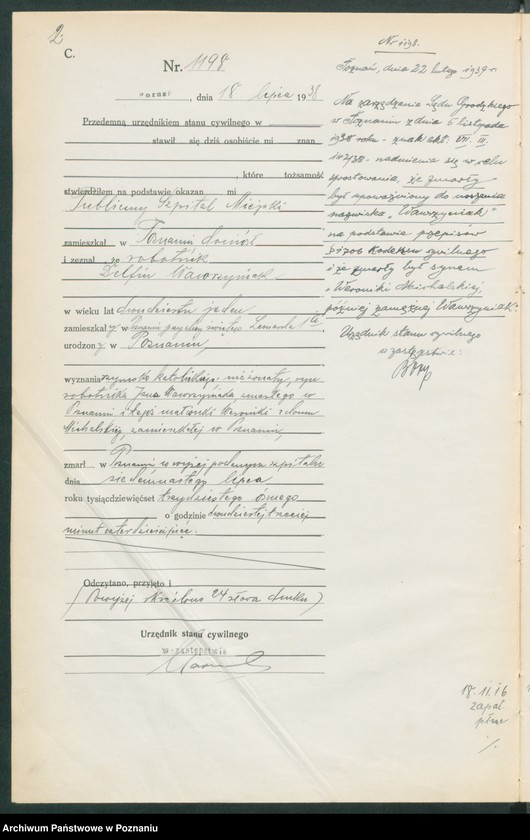 2
C.
Nr. 1198
Poznań, dnia 18 lipca 1938
Przedemną urzędnikiem stanu cywilnego w
stawił się dziś osobiście mi znan
, które tożsamość
stwierdziłem na podstawie okazan mi
Szpital Miejski
zamieszkał w Poznaniu donosi
i zeznał, że robotnik
Delfin Wawrzyniak
w wieku lat dwudziestu jeden
zamieszkały w Poznaniu przy ulicy
urodzony w Poznaniu,
wyznania rzymsko katolickiego, nieżonaty, syn
robotnika Jana Wawrzyniaka zmarłego w
Poznaniu i tegoż małżonki Weroniki z domu
Michalskiej, zamieszkałej w Poznaniu,
zmarł w Poznaniu w wyżej podanym szpitalu
dnia siedemnastego lipca
roku tysiącdziewięćset trzydziestego ósmego
o godzinie dwudziestej trzeciej
minut czterdzieści pięć.
Odczytano, przyjęto i
(Powyżej skreślono 24 słowa druku)
Urzędnik stanu cywilnego
w zastępstwie
Nr 1198.
Poznań, dnia 22 lutego 1939 r.
Na zarządzenie Sądu Grodzkiego
w Poznaniu z dnia 5 listopada
1938 roku - znak akt. VII. III.
102/38 - nadmienia się w celu
sprostowania, że zmarły
był upoważniony do noszenia
nazwiska "Wawrzyniak"
na podstawie przepisów
§1706 Kodeksu cywilnego
i że zmarły był synem
Weroniki Michalskiej
później zamężnej Wawrzyniak.
Urzędnik stanu cywilnego
w zastępstwie:
18.11.16
zapal
płuc
Archiwum Państwowe w Poznaniu